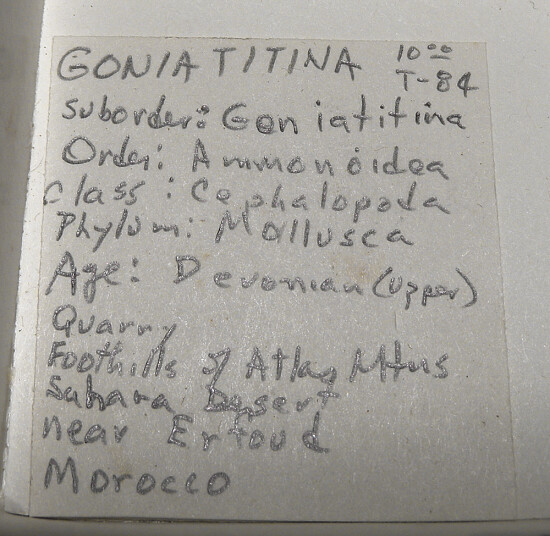 GONIATITINA 10 00
T-84
Suborder: Goniatitina
Order: Ammonoidea
Class: Cephalopoda
Phylum: Mollusca
Age: Devonian (Upper)
Quarry
Foothills of Atlas Mtns
Sahara Desert
near Erfoud
Morocco